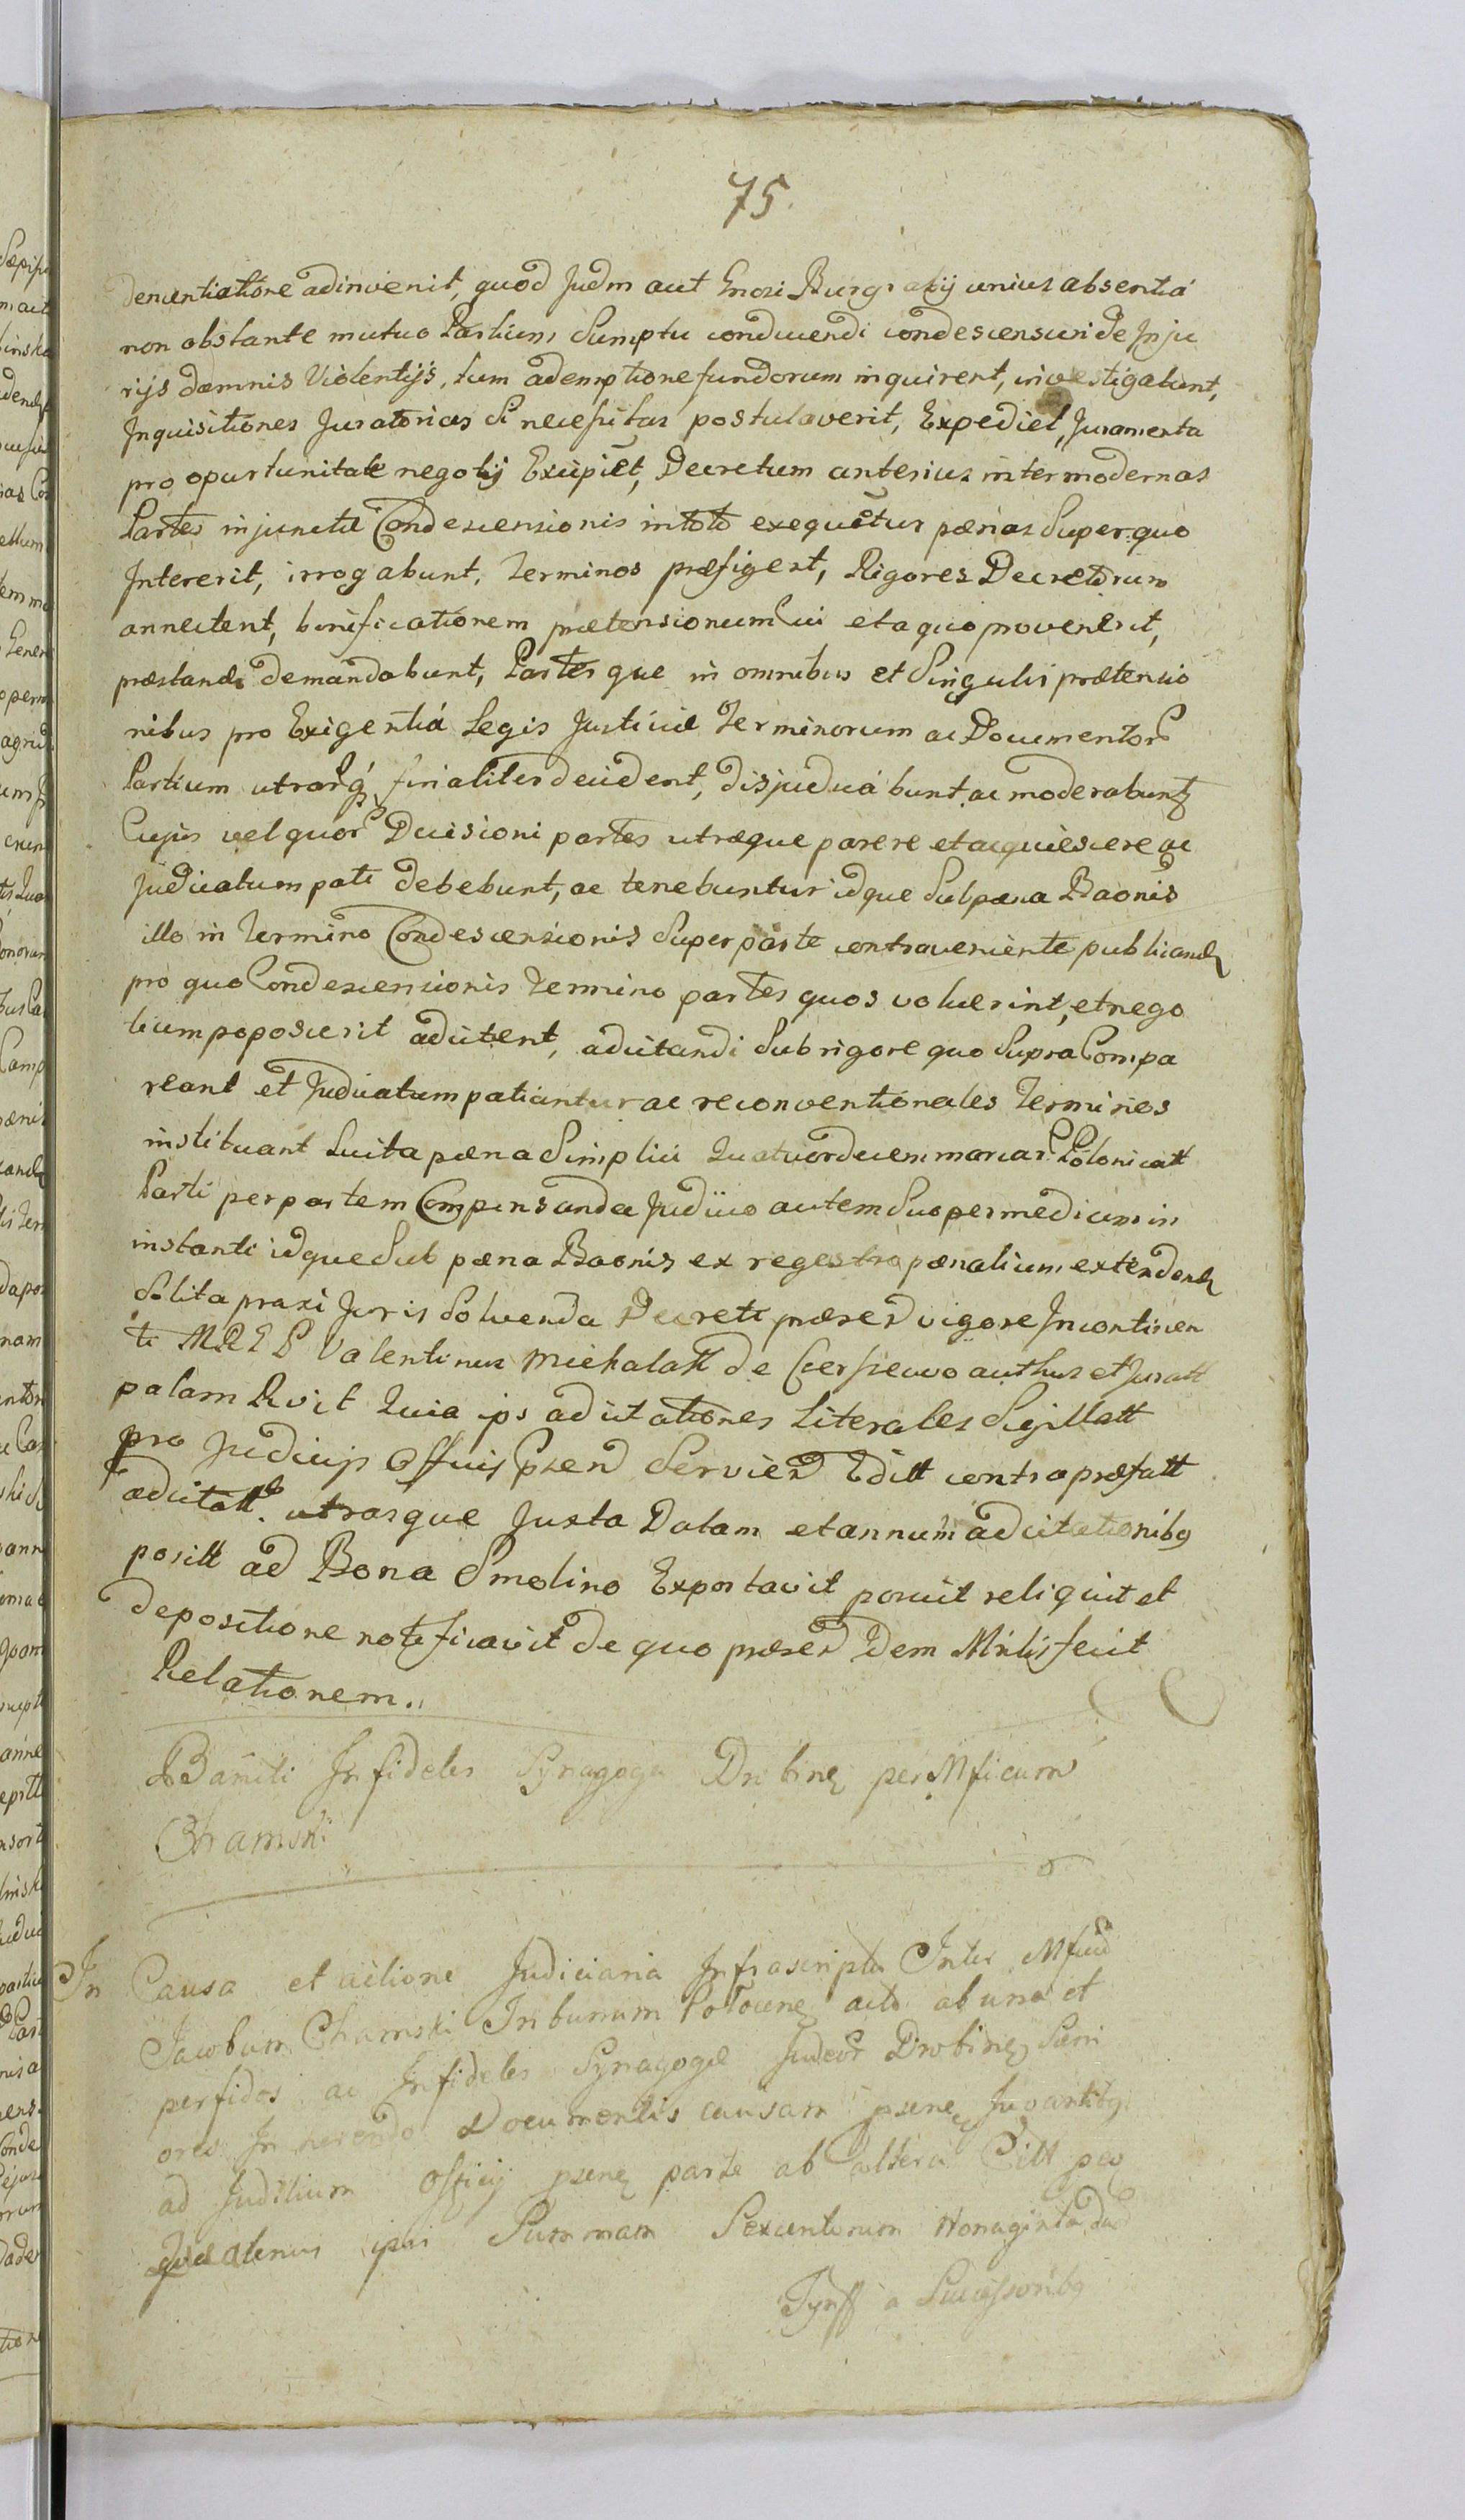 75.
denuntiatione adinvenit, quod Judm aut Gnosi Burgrabij unius absentiá
non obstante mutuo Partium Sumptu conducendi condescensuri de Inju
rijs damnis Violentijs, tum ademptione fundorum inquirent, investigabunt,
Inquisitiones Juratorias Si necessitas postulaverit, Expediet, Juramenta
pro oportunitate negotij Excipiet, Decretum anterius inter modernas
Partes injunctæ Condescensionis in toto exequetur pænas Super quo
Intererit, irrogabunt, Terminos præfigent, Rigores Decretorum
annectent, bonificationem prætensionum Cui et a quo provenerit,
præstandæ demandabunt, Partes que in omnibus et Singulis prætensio
nibus pro Exigentiá Legis Justitiæ Terminorum ac Documentor
Partium utrarq finaliter decident, disjudicábunt ac moderabunt
Cujus vel quor Decisioni partes utræque parere et acquiescere ac
Judicatum pati debebunt, ac tenebuntur idque Sub pæna Baonis
illo in Termino Condescensionis Super parte contraveniente publicand
pro quo Condescensionis Termino partes quos voluerint, et nego
tium poposcerit adcitent, adcitandi Sub rigore quo Supra Compa
reant et Judicatum patiantur ac reconventionales Terminos
instituant Luita pæna Simplici Quatuordecem marcar Polonicatt
Parti per partem Compensanda Judicio autem Suo per medium in
instanti idque Sub pæna Baonis ex regestro pænalium extendend
Solita praxi Juris Solvenda Decreti præsen vigore Incontinen
ti M R E P Valentinus Michalatt de authus et Juratt
palam Rvit Quia ips adcitationes Literales Sigillatt
pro Judicijs Offcijs Psen Servien Editt contra præfatt
adcitatt. utrasque Juxta Datam et annum adcitationibq
positt ad Bona Smolino Exportavit posuit reliquit et
depositione notificavit de quo præsen Dem Mnlis fecit
Relationem.
Bañiti Infideles Synagoga Drobinen per Mficum
Chamski
In Causa et actione Judiciaria Infrascripta Inter Mficu
Jacobum Chamski Tribunum Plocien acto ab una et
perfidos ac Infideles Synagogæ Judeor Drobinen Seni
ores In herendo Documentis causam psenen Juvantibq
ad Juditium Officij psenen parte ab altera Citt peq
Quatenus ipsi Summam Sexcentorum Nonaginta
Tynff a Sucessoribq